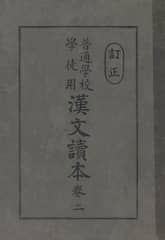 訂正
普通學校
學徒用
漢文讀本 卷二